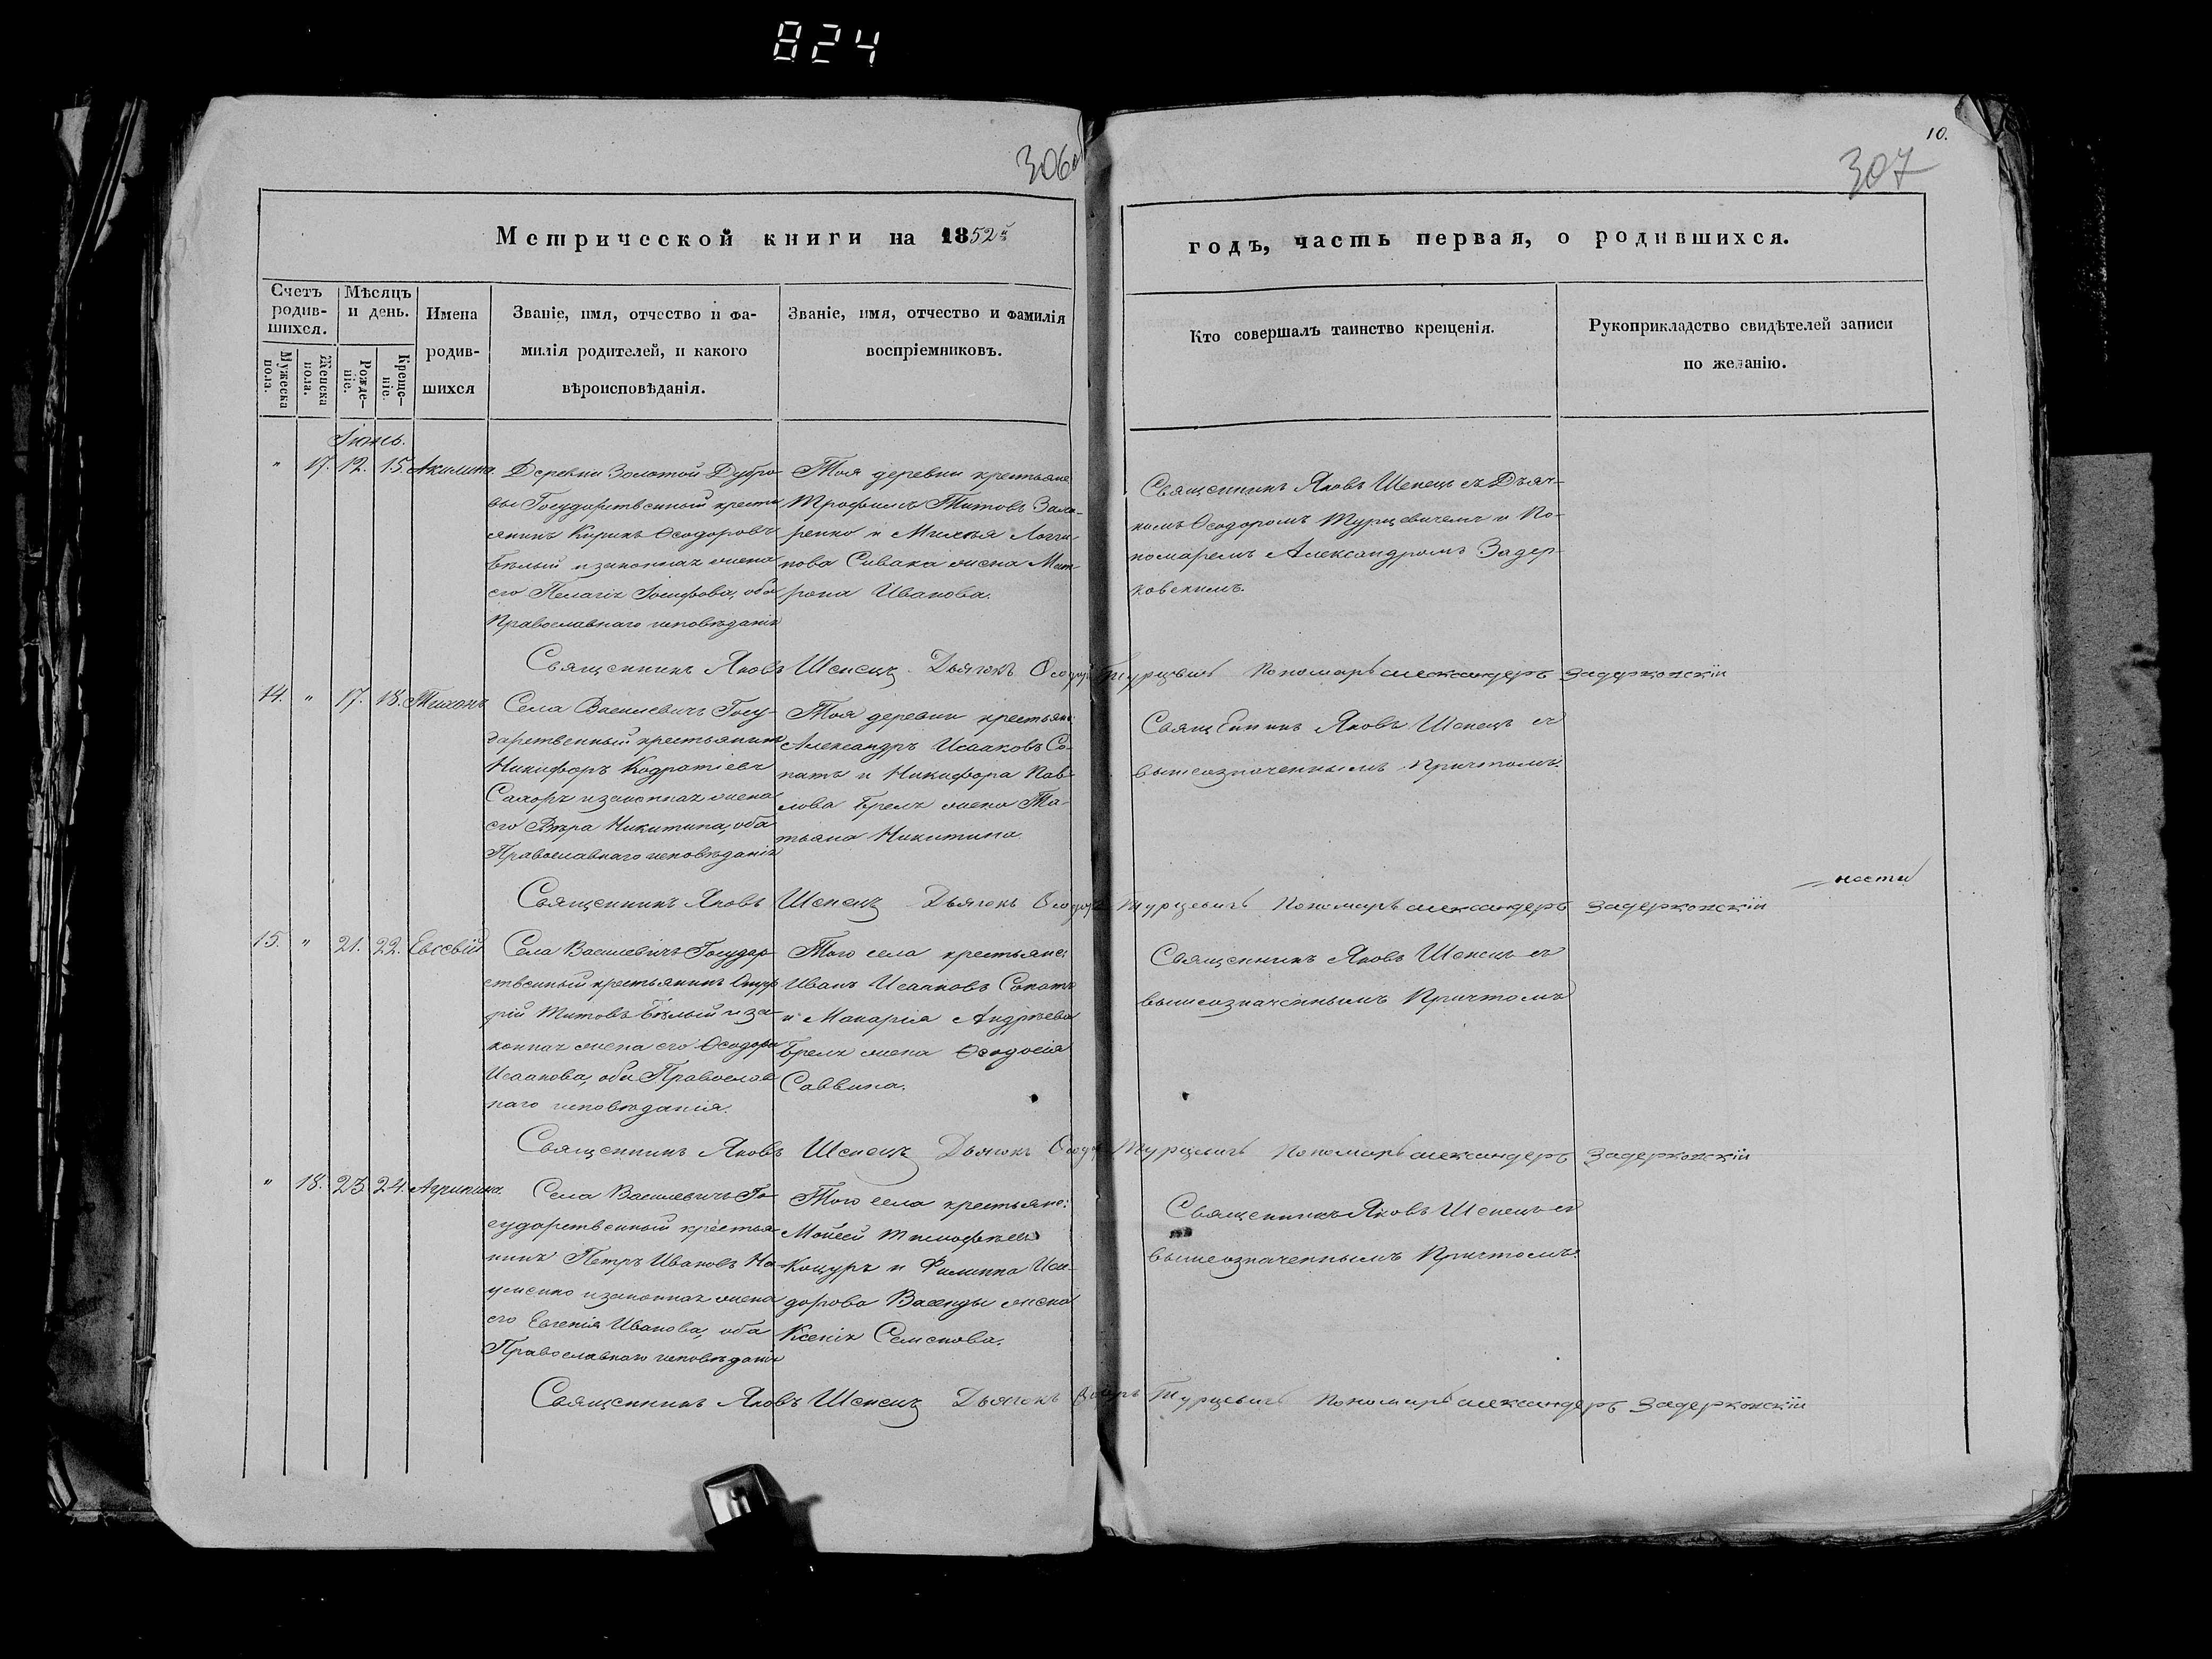 824
306об
10.
307
Метрической книги на 1852й
годъ, часть первая, о родившихся.
Счетъ родив-шихся.
Мѣсяцъ и день.
Имена родив-шихся
Званіе, имя, отчество и фа-
милія родителей, и какого
вѣроисповѣданія.
Званіе, имя, отчество и фамилія
воспріемниковъ.
Кто совершалъ таинство крещенія.
Рукоприкладство свидѣтелей записи
по желанію.
Мужеска пола.
Женска пола.
Рожде-ніе.
Креще-ніе.
Іюнь.
" 17. 12. 15. Акилина.
Деревни Золотой Дубро
вы Государственный крестья
янинъ Кирикъ Ѳеодоровъ
Бѣлый и законная жена
его Пелагія Іосифова, оба
Православнаго исповѣданія
Тоя деревни крестьяне
Трофимъ Титовъ Заха-
ренко и Логги-
нова Сивака жена Мат-
рона Иванова.
Священникъ Яковъ Шепецъ съ Дьяч-
комъ Ѳеодоромъ Турцевичемъ и По-
номаремъ Александромъ Задер-
ковскимъ.
Священникъ Яковъ Шепецъ Дьячокъ Ѳеодоръ Турцевичъ Пономарь александеръ Задерковскій
14. " 17. 18. Тихонъ.
Села Василевичъ Госу-
дарственный крестьянинъ
Никифоръ Кодратіевъ
Сахоръ и законная жена
его Вѣра Никитина, оба
Православнаго исповѣданія
Тоя деревни крестьяне
Александръ Исааковъ Со-
патъ и Никифора Пав-
лова Брель жена Та-
тьяна Никитина.
Священникъ Яковъ Шепецъ съ
вышеозначеннымъ Причтомъ.
Священникъ Яковъ Шепецъ Дьячокъ Ѳеодоръ Турцевичъ Пономарь александеръ Задерковскій
15. " 21. 22. Евсевій
Села Василевичъ Государ-
ственный крестьянинъ Онуф
рій Титовъ Бѣлый и за-
конная жена его Ѳеодора
Исаакова, оба Православ
наго исповѣданія.
Того села крестьяне:
Иванъ Исааковъ Сопатъ
и Макарія Андрѣева
Брель жена Ѳеодосія
Саввина.
Священникъ Яковъ Шепецъ съ
вышеозначеннымъ Причтомъ
Священникъ Яковъ Шепецъ Дьячокъ Ѳеодоръ Турцевичъ Пономарь александеръ Задерковскій
" 18. 23. 24. Агрипина.
Села Василевичъ Го-
сударственный крестья
нинъ Петръ Ивановъ На-
уменко и законная жена
его Евгенія Иванова, оба
Православнаго исповѣданія
Того села крестьяне:
Моисей Тимофѣевъ
Коцуръ и Филиппа Иси-
дорова Васенды жена
Ксенія Семенова.
Священникъ Яковъ Шепецъ съ
вышеозначеннымъ Причтомъ.
Священникъ Яковъ Шепецъ Дьячокъ Ѳеодоръ Турцевичъ Пономарь александеръ Задерковскій